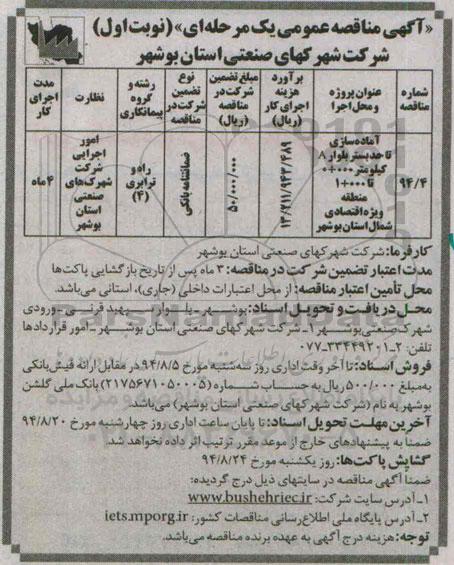 «آگهی مناقصه عمومی یک مرحله‌ای» (نوبت اول)
شرکت شهرکهای صنعتی استان بوشهر
شماره مناقصه
عنوان پروژه و محل اجرا
برآورد هزینه اجرای کار (ریال)
مبلغ تضمین شرکت در مناقصه (ریال)
نوع تضمین شرکت در مناقصه
رشته و گروه پیمانکاری
نظارت
مدت اجرای کار
۹۴/۴
آماده‌سازی تا حد بستر بلوار ۸ کیلومتر ۰+۰۰۰ تا ۱+۰۰۰ منطقه ویژه اقتصادی شمال استان بوشهر
۱۲/۲۱۱/۹۴۳/۴۸۹
۵۰/۰۰۰/۰۰۰
ضمانتنامه بانکی
راه و ترابری (۴)
امور اجرایی شرکت شهرک‌های صنعتی استان بوشهر
۴ ماه
کارفرما: شرکت شهرکهای صنعتی استان بوشهر
مدت اعتبار تضمین شرکت در مناقصه: ۳ ماه پس از تاریخ بازگشایی پاکت‌ها
محل تأمین اعتبار مناقصه: از محل اعتبارات داخلی (جاری)، استانی می‌باشد.
محل دریافت و تحویل اسناد: بوشهر - بلوار شهید قرنی - ورودی
شهرک صنعتی بوشهر ۱ - شرکت شهرکهای صنعتی استان بوشهر - امور قراردادها
تلفن: ۲-۳۳۴۴۹۲۰۱-۰۷۷
فروش اسناد: تا آخر وقت اداری روز سه‌شنبه مورخ ۹۴/۸/۵ در مقابل ارائه فیش بانکی
به مبلغ ۵۰۰/۰۰۰ ریال به حساب شماره (۲۱۷۵۶۷۱۰۵۰۰۰۵) بانک ملی گلشن
بوشهر به نام (شرکت شهرکهای صنعتی استان بوشهر) می‌باشد.
آخرین مهلت تحویل اسناد: تا پایان ساعت اداری روز چهارشنبه مورخ ۹۴/۸/۲۰
ضمنا به پیشنهادهای خارج از موعد مقرر ترتیب اثر داده نخواهد شد.
گشایش پاکت‌ها: روز یکشنبه مورخ ۹۴/۸/۲۴
ضمنا آگهی مناقصه در سایتهای ذیل درج گردیده:
۱- آدرس سایت شرکت: www.bushehriec.ir
۲- آدرس پایگاه ملی اطلاع‌رسانی مناقصات کشور: iets.mporg.ir
توجه: هزینه درج آگهی به عهده برنده مناقصه می‌باشد.